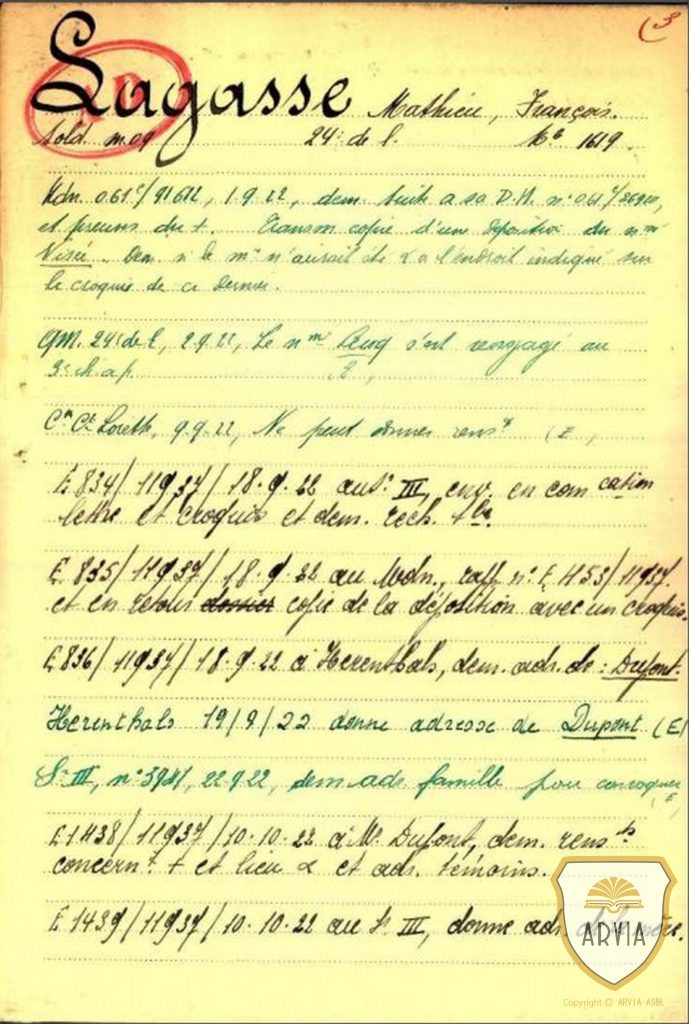 (3
Lagasse Mathieu, François.
Sold. m. 09 24e de l. No 1619
Mdn. 061c/91612, 1.9.22, dem. suite a sa D.M. no 061
et preuves du +. Transm copie d'une deposition du nmé
Visée. Dem. si le mt n'aurait été a l'endroit indiqué sur
le croquis de ce dernier.
QM. 24e de l, 2.9.22, Le nmé s'est rengagé au
3e ch. a p.
Ct Loreth, 9.9.22, Ne peut donner renst (E)
E 834/11937/18.9.22 au Sr III, env. en comcation
lettre et croquis et dem. rech. tbe.
E 835/11937/18.9.22 au Mdn., rapp. no E 1453/11937.
et en retour dossier copie de la déposition avec un croquis.
E 836/11937/18.9.22 à Herenthals, dem. adr. de : Dupont.
Herenthals 19/9/22 donne adresse de Dupont (E)
Sr III, no 3941, 22.9.22, dem adr famille pour convoquer
(E)
E 1438/11937/10.10.22 à Mr Dupont, dem. rensts
concernt + et lieu et adr. témoins.
E 1439/11937/10.10.22 au Sr III, donne adr. de la mère.
ARVIA
Copyright © ARVIA ASBL